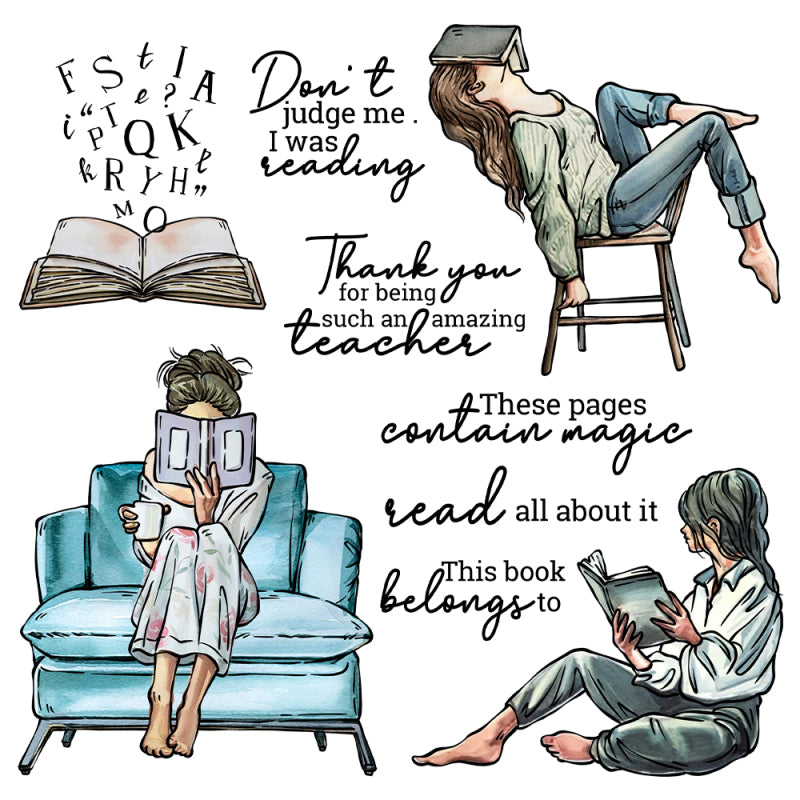 F S t I A
t e ?
i “ P T Q K
k R Y H t ”
M O
Don't
judge me .
I was
reading
Thank you
for being
such an amazing
teacher
These pages
contain magic
read all about it
This book
belongs to